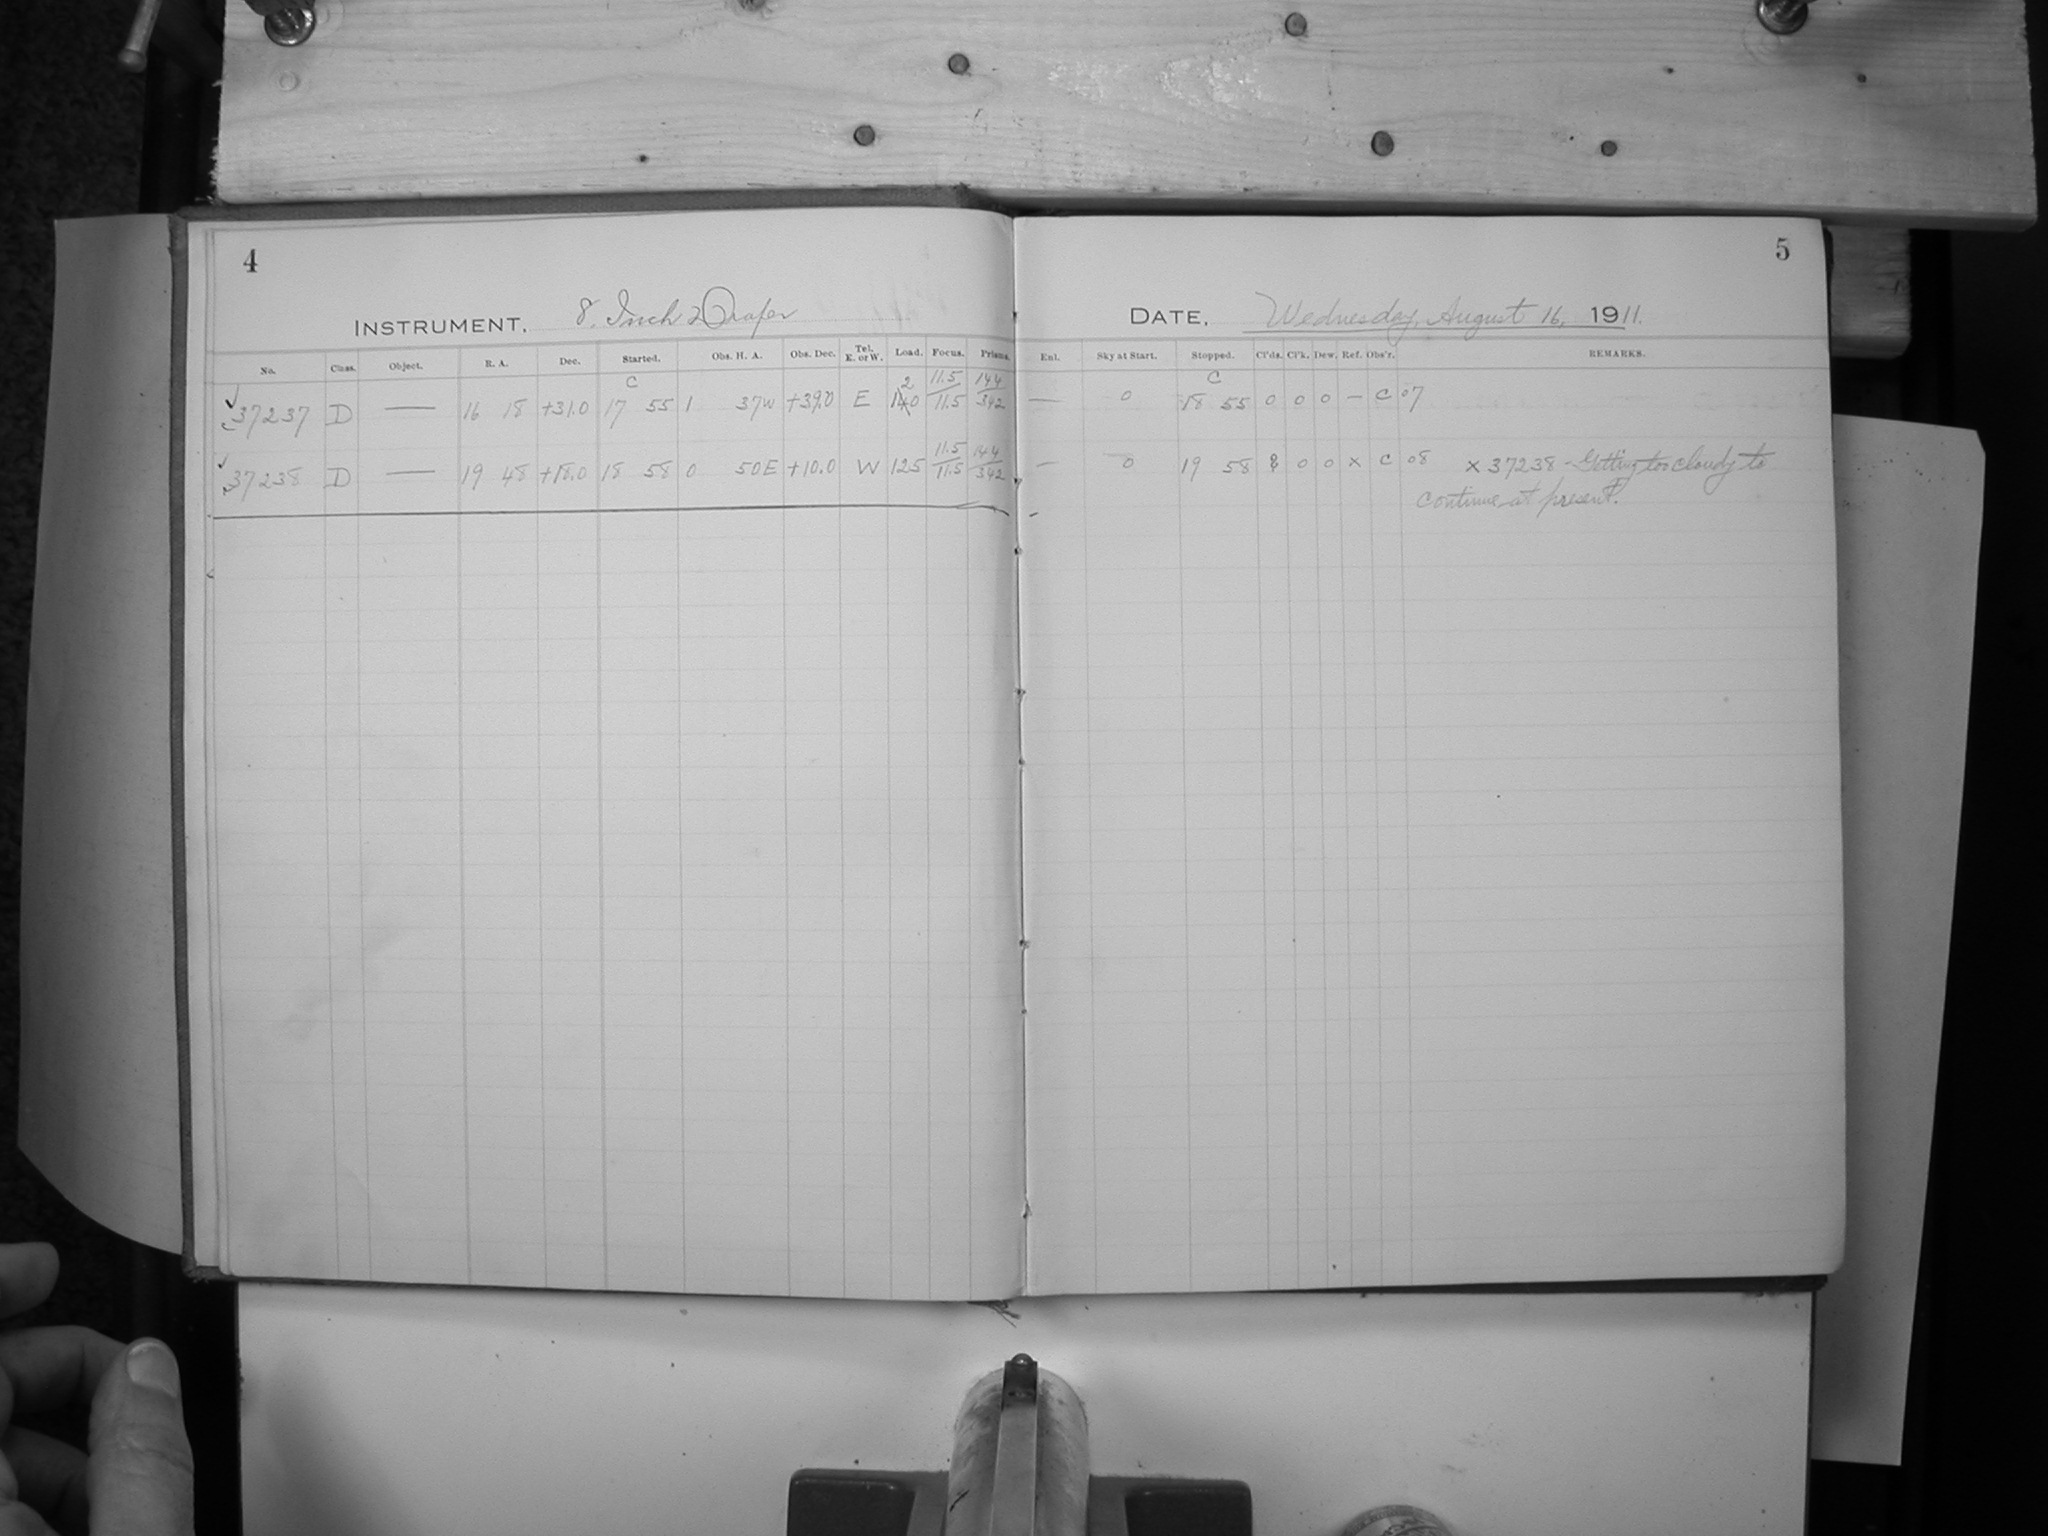 4
5
INSTRUMENT, 8. Inch Draper
DATE, Wednesday, August 16, 1911.
No. Class. Object. R. A. Dec. Started. Obs. H. A. Obs. Dec. Tel. E. or W. Load. Focus. Prisms. Enl. Sky at Start. Stopped. Cl'ds. Cl'k. Dew. Ref. Obs'r. REMARKS.
C 2 11.5 144 C
37237 D — 16 18 +31.0 17 55 1 37W +39.0 E 140 11.5 342 — 0 18 55 0 0 0 – C 07
11.5 144
37238 D — 19 48 +18.0 18 58 0 50E +10.0 W 125 11.5 342 — 0 19 58 8 0 0 x C 08 x 37238 - Getting too cloudy to
continue at present.